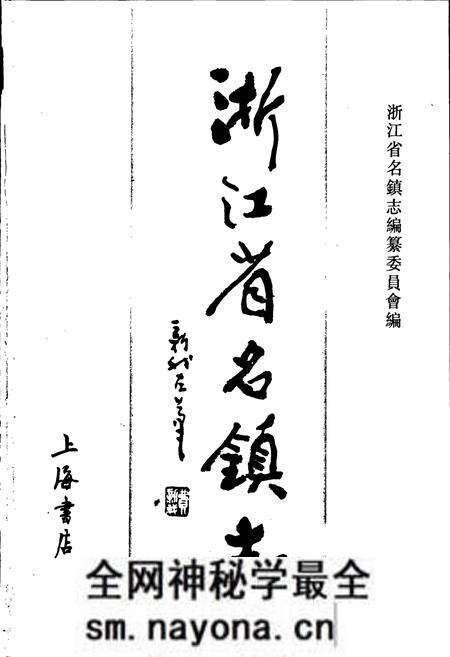 浙江省名鎮志編纂委員會編
浙江省名鎮志
費新我左筆
上海書店
全网神秘学最全
sm.nayona.cn